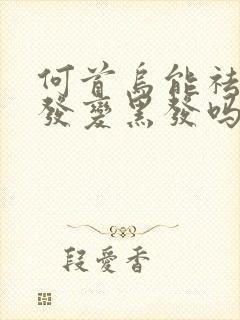 何首烏能祛
發變黑發嗎
段愛香